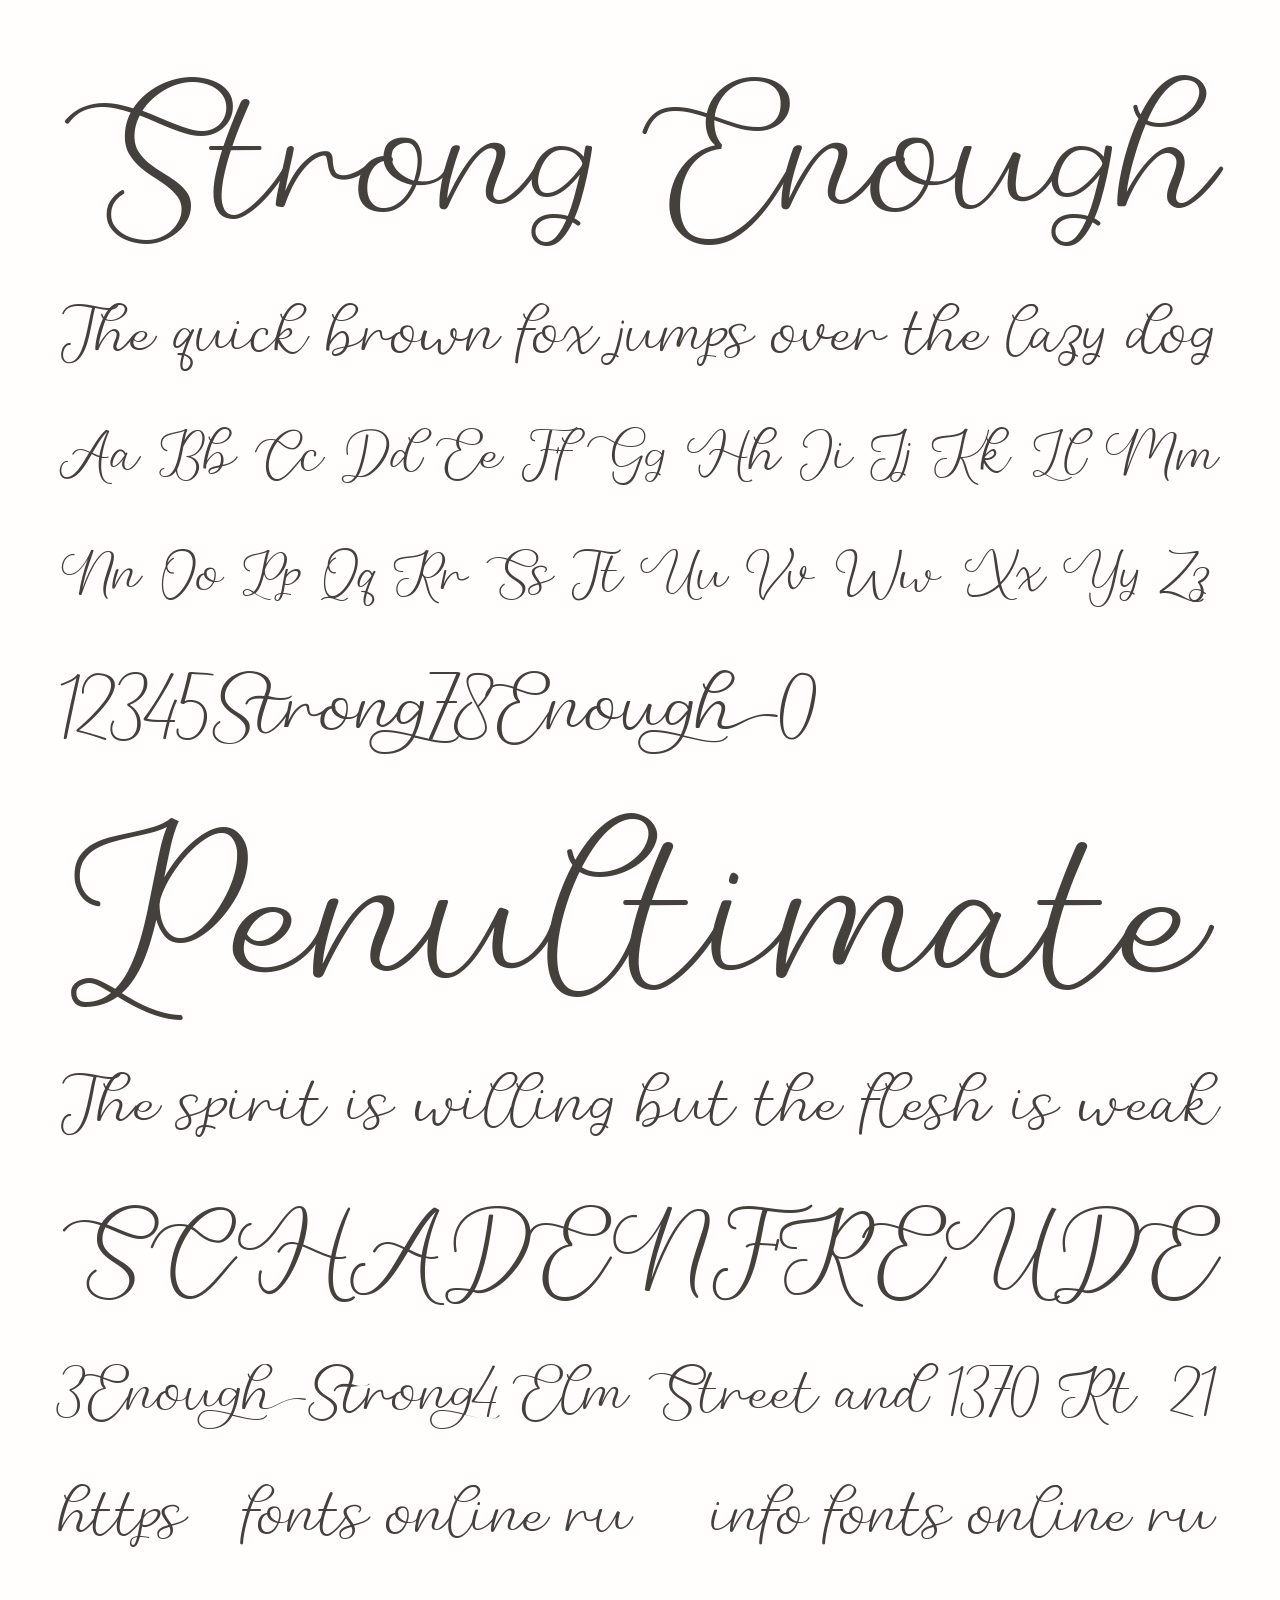 Strong Enough
The quick brown fox jumps over the lazy dog
Aa Bb Cc Dd Ee Ff Gg Hh Ii Jj Kk Ll Mm
Nn Oo Pp Qq Rr Ss Tt Uu Vv Ww Xx Yy Zz
12345Strong78Enough0
Penultimate
The spirit is willing but the flesh is weak
SCHADENFREUDE
3Enough Strong4 Elm Street and 1370 Rt 21
https fonts online ru info fonts online ru